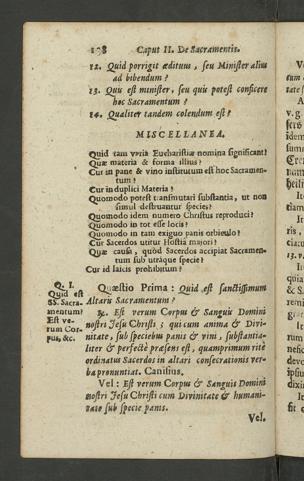 108 Caput II. De Sacramentis.
12. Quid porrigit ædituus, seu Minister alius
ad bibendum?
13. Quis est minister, seu quis potest conficere
hoc Sacramentum?
14. Qualiter tandem colendum est?
MISCELLANEA.
Quid tam varia Eucharistiæ nomina significant?
Quæ materia & forma illius?
Cur in pane & vino institutum est hoc Sacramen-
tum?
Cur in duplici Materia?
Quomodo potest transmutari substantia, ut non
simul destruantur species?
Quomodo idem numero Christus reproduci?
Quomodo in tot esse locis?
Quomodo in tam exiguo panis orbiculo?
Cur Sacerdos utitur Hostiâ majori?
Quæ causa, quòd Sacerdos accipiat Sacramen-
tum sub utrâque specie?
Cur id laicis prohibitum?
Q. I.
Quid est
SS. Sacra-
mentum?
Est ve-
rum Cor-
pus, &c.
Quæstio Prima: Quid est sanctissimum
Altaris Sacramentum?
℟. Est verum Corpus & Sanguis Domini
nostri Jesu Christi; qui cum anima & Divi-
nitate, sub speciebus panis & vini, substantia-
liter & perfectè præsens est, quamprimum ritè
ordinatus Sacerdos in altari consecrationis ver-
ba pronuntiat. Canisius.
Vel: Est verum Corpus & Sanguis Domini
nostri Jesu Christi cum Divinitate & humani-
tate sub specie panis.
Vel.